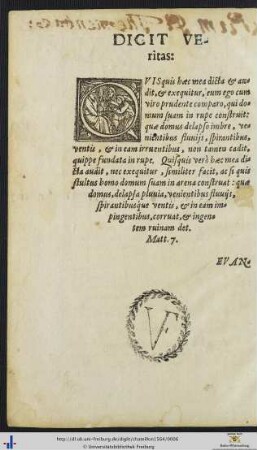 DICIT VE-
ritas:
QVISquis hæc mea dicta & au
dit, & exequitur, eum ego cum
viro prudente comparo, qui do
mum suam in rupe construit:
quæ domus delapso imbre, ve
nientibus fluuijs, spirantibus,
ventis, & in eam irruentibus, non tamen cadit,
quippe fundata in rupe. Quisquis verò hæc mea di
cta audit, nec exequitur, similiter facit, ac si quis
stultus homo domum suam in arena construat: quæ
domus, delapsa pluuia, venientibus fluuijs,
spirantibusque ventis, & in eam im-
pingentibus, corruat, & ingen-
tem ruinam det.
Matt. 7.
EVAN-
© Universitätsbibliothek Freiburg